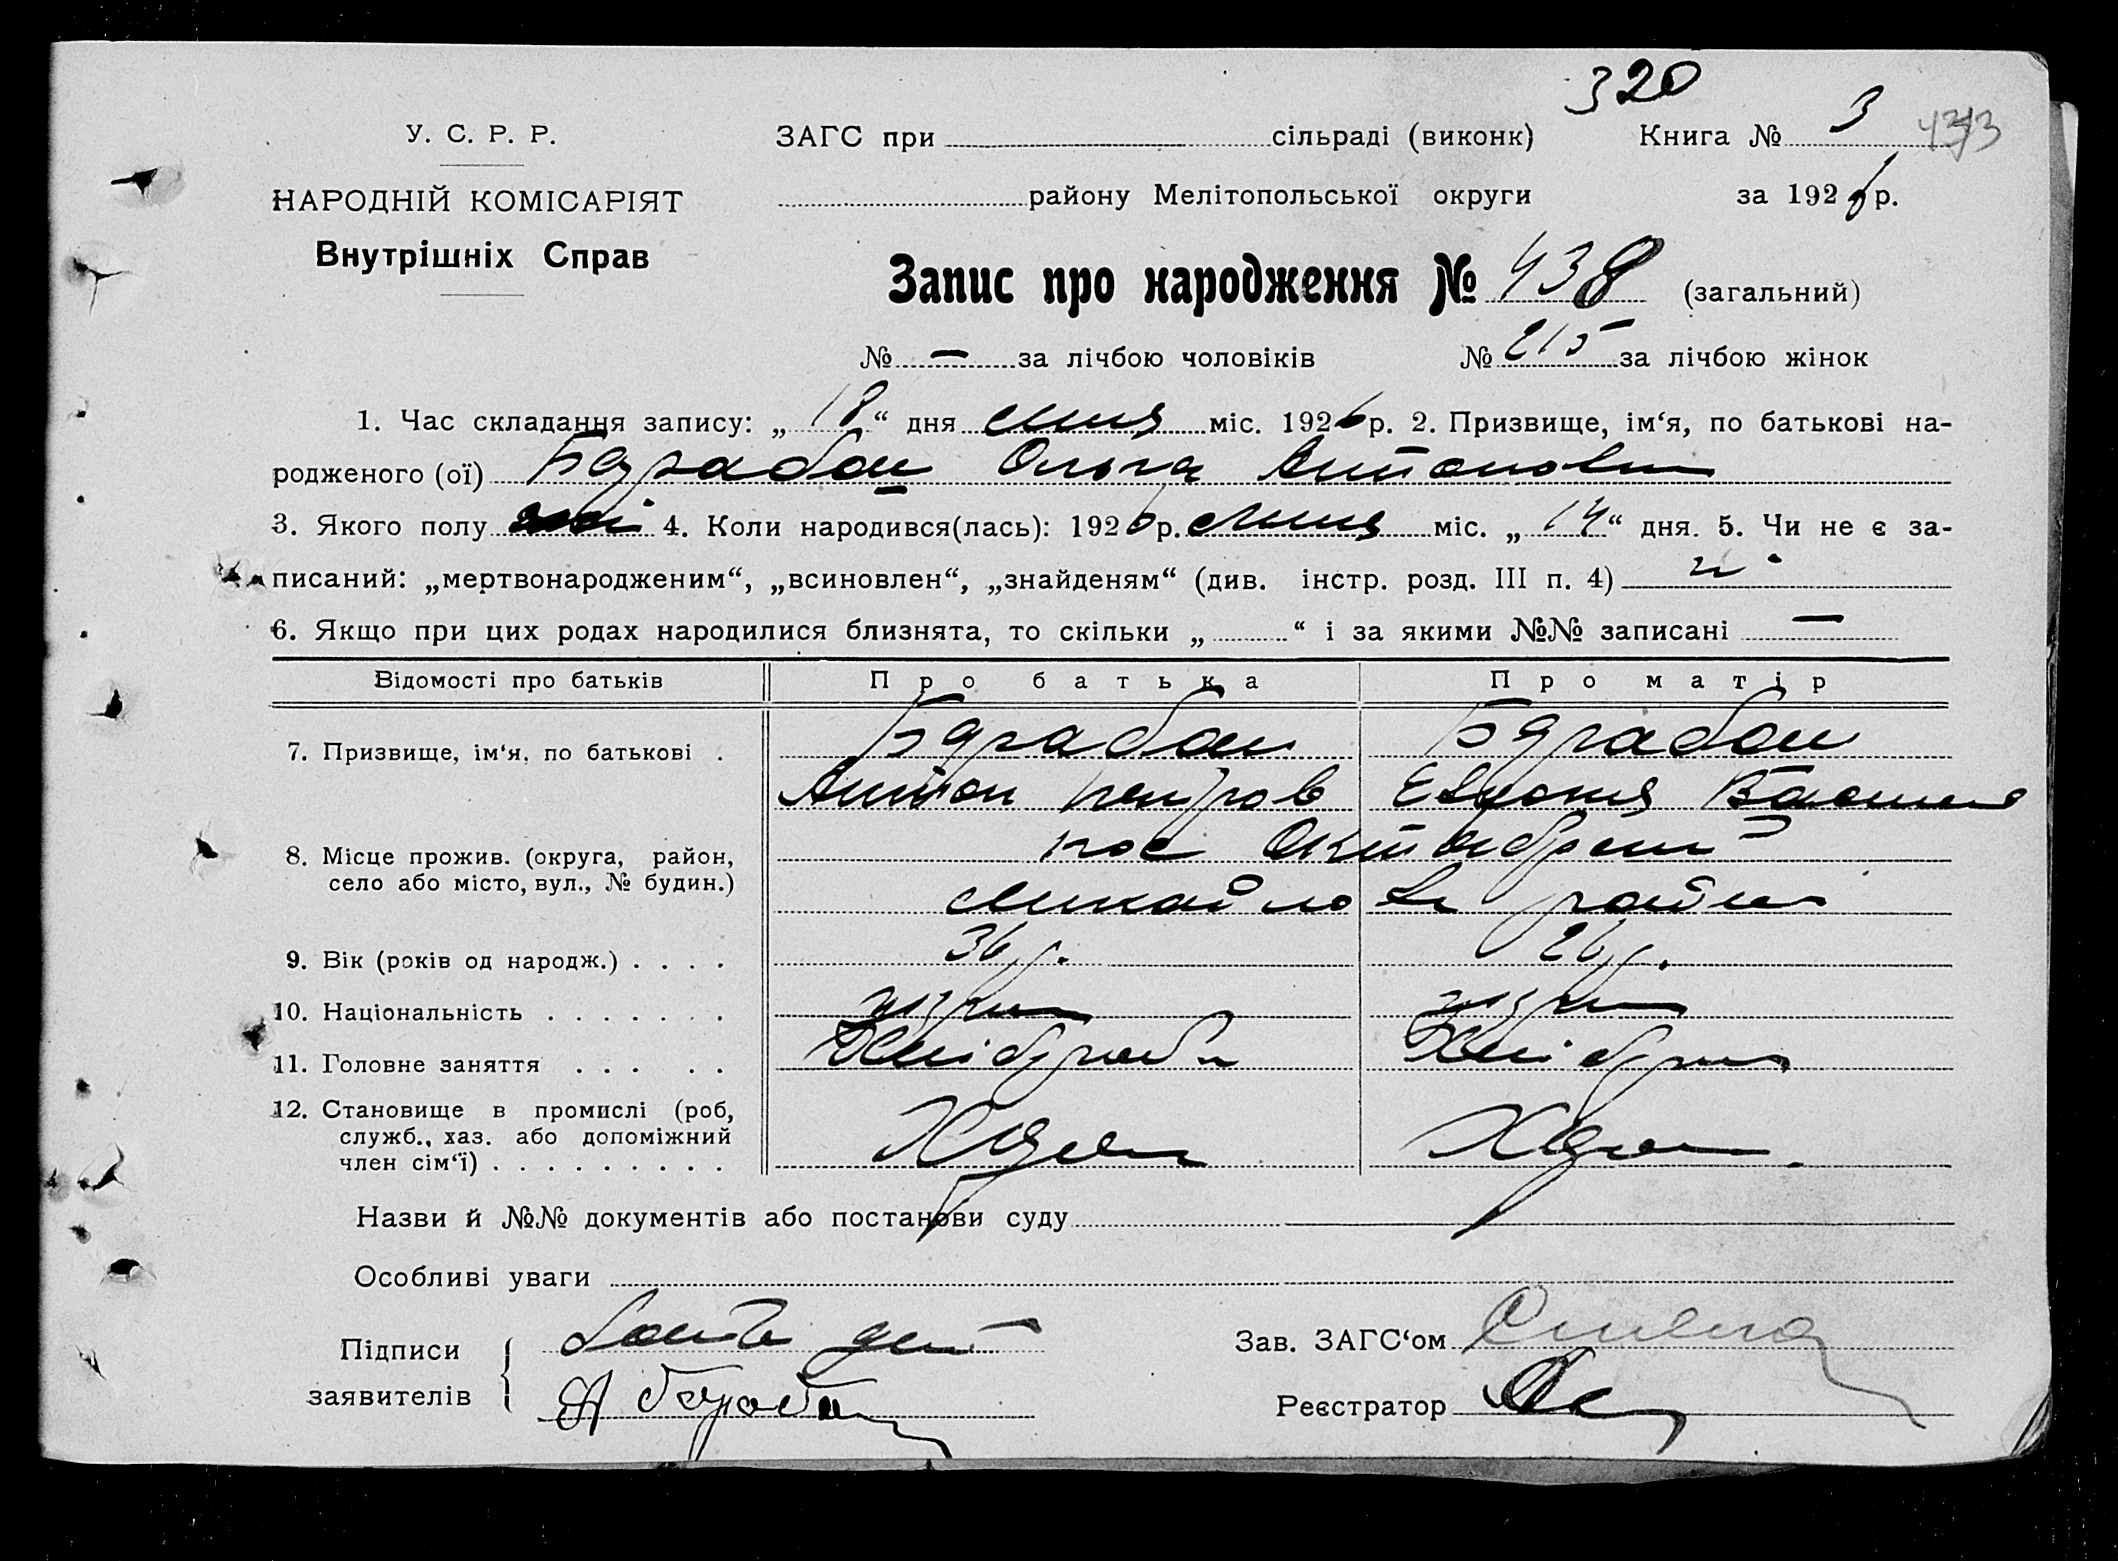 320
У. С. Р. Р.
ЗАГС при сільраді (виконк) Книга № 3
НАРОДНІЙ КОМІСАРІЯТ
району Мелітопольської округи за 1926 р.
Внутрішніх Справ
Запис про народження № 438 (загальний)
№ — за лічбою чоловіків № 215 за лічбою жінок
1. Час складання запису: „18“ дня міс. 1926 р. 2. Призвище, ім‘я, по батькові на-
родженого (ої) Барабаш Ольга Антонов
3. Якого полу 4. Коли народився(лась): 1926 р. міс. „14“ дня. 5. Чи не є за-
писаний: „мертвонародженим“, „всиновлен“, „знайденям“ (див. інстр. розд. III п. 4)
6. Якщо при цих родах народилися близнята, то скільки „ “ і за якими №№ записані —
Відомості про батьків Про батька Про матір
7. Призвище, ім‘я, по батькові . Барабаш Барабаш
Антон Петров Евдокия
8. Місце прожив. (округа, район,
село або місто, вул., № будин.)
пос
Михайлов район
9. Вік (років од народж.) . . . . 36 р. 26 р.
10. Національність . . . . . . . укр укр
11. Головне заняття . . . . . Хлібороб Хлібор
12. Становище в промислі (роб,
служб., хаз. або допоміжний
член сім‘ї) . . . . . . . . .
Назви й №№ документів або постанови суду
Особливі уваги
Підписи
заявителів
Зав. ЗАГС‘ом
Реєстратор